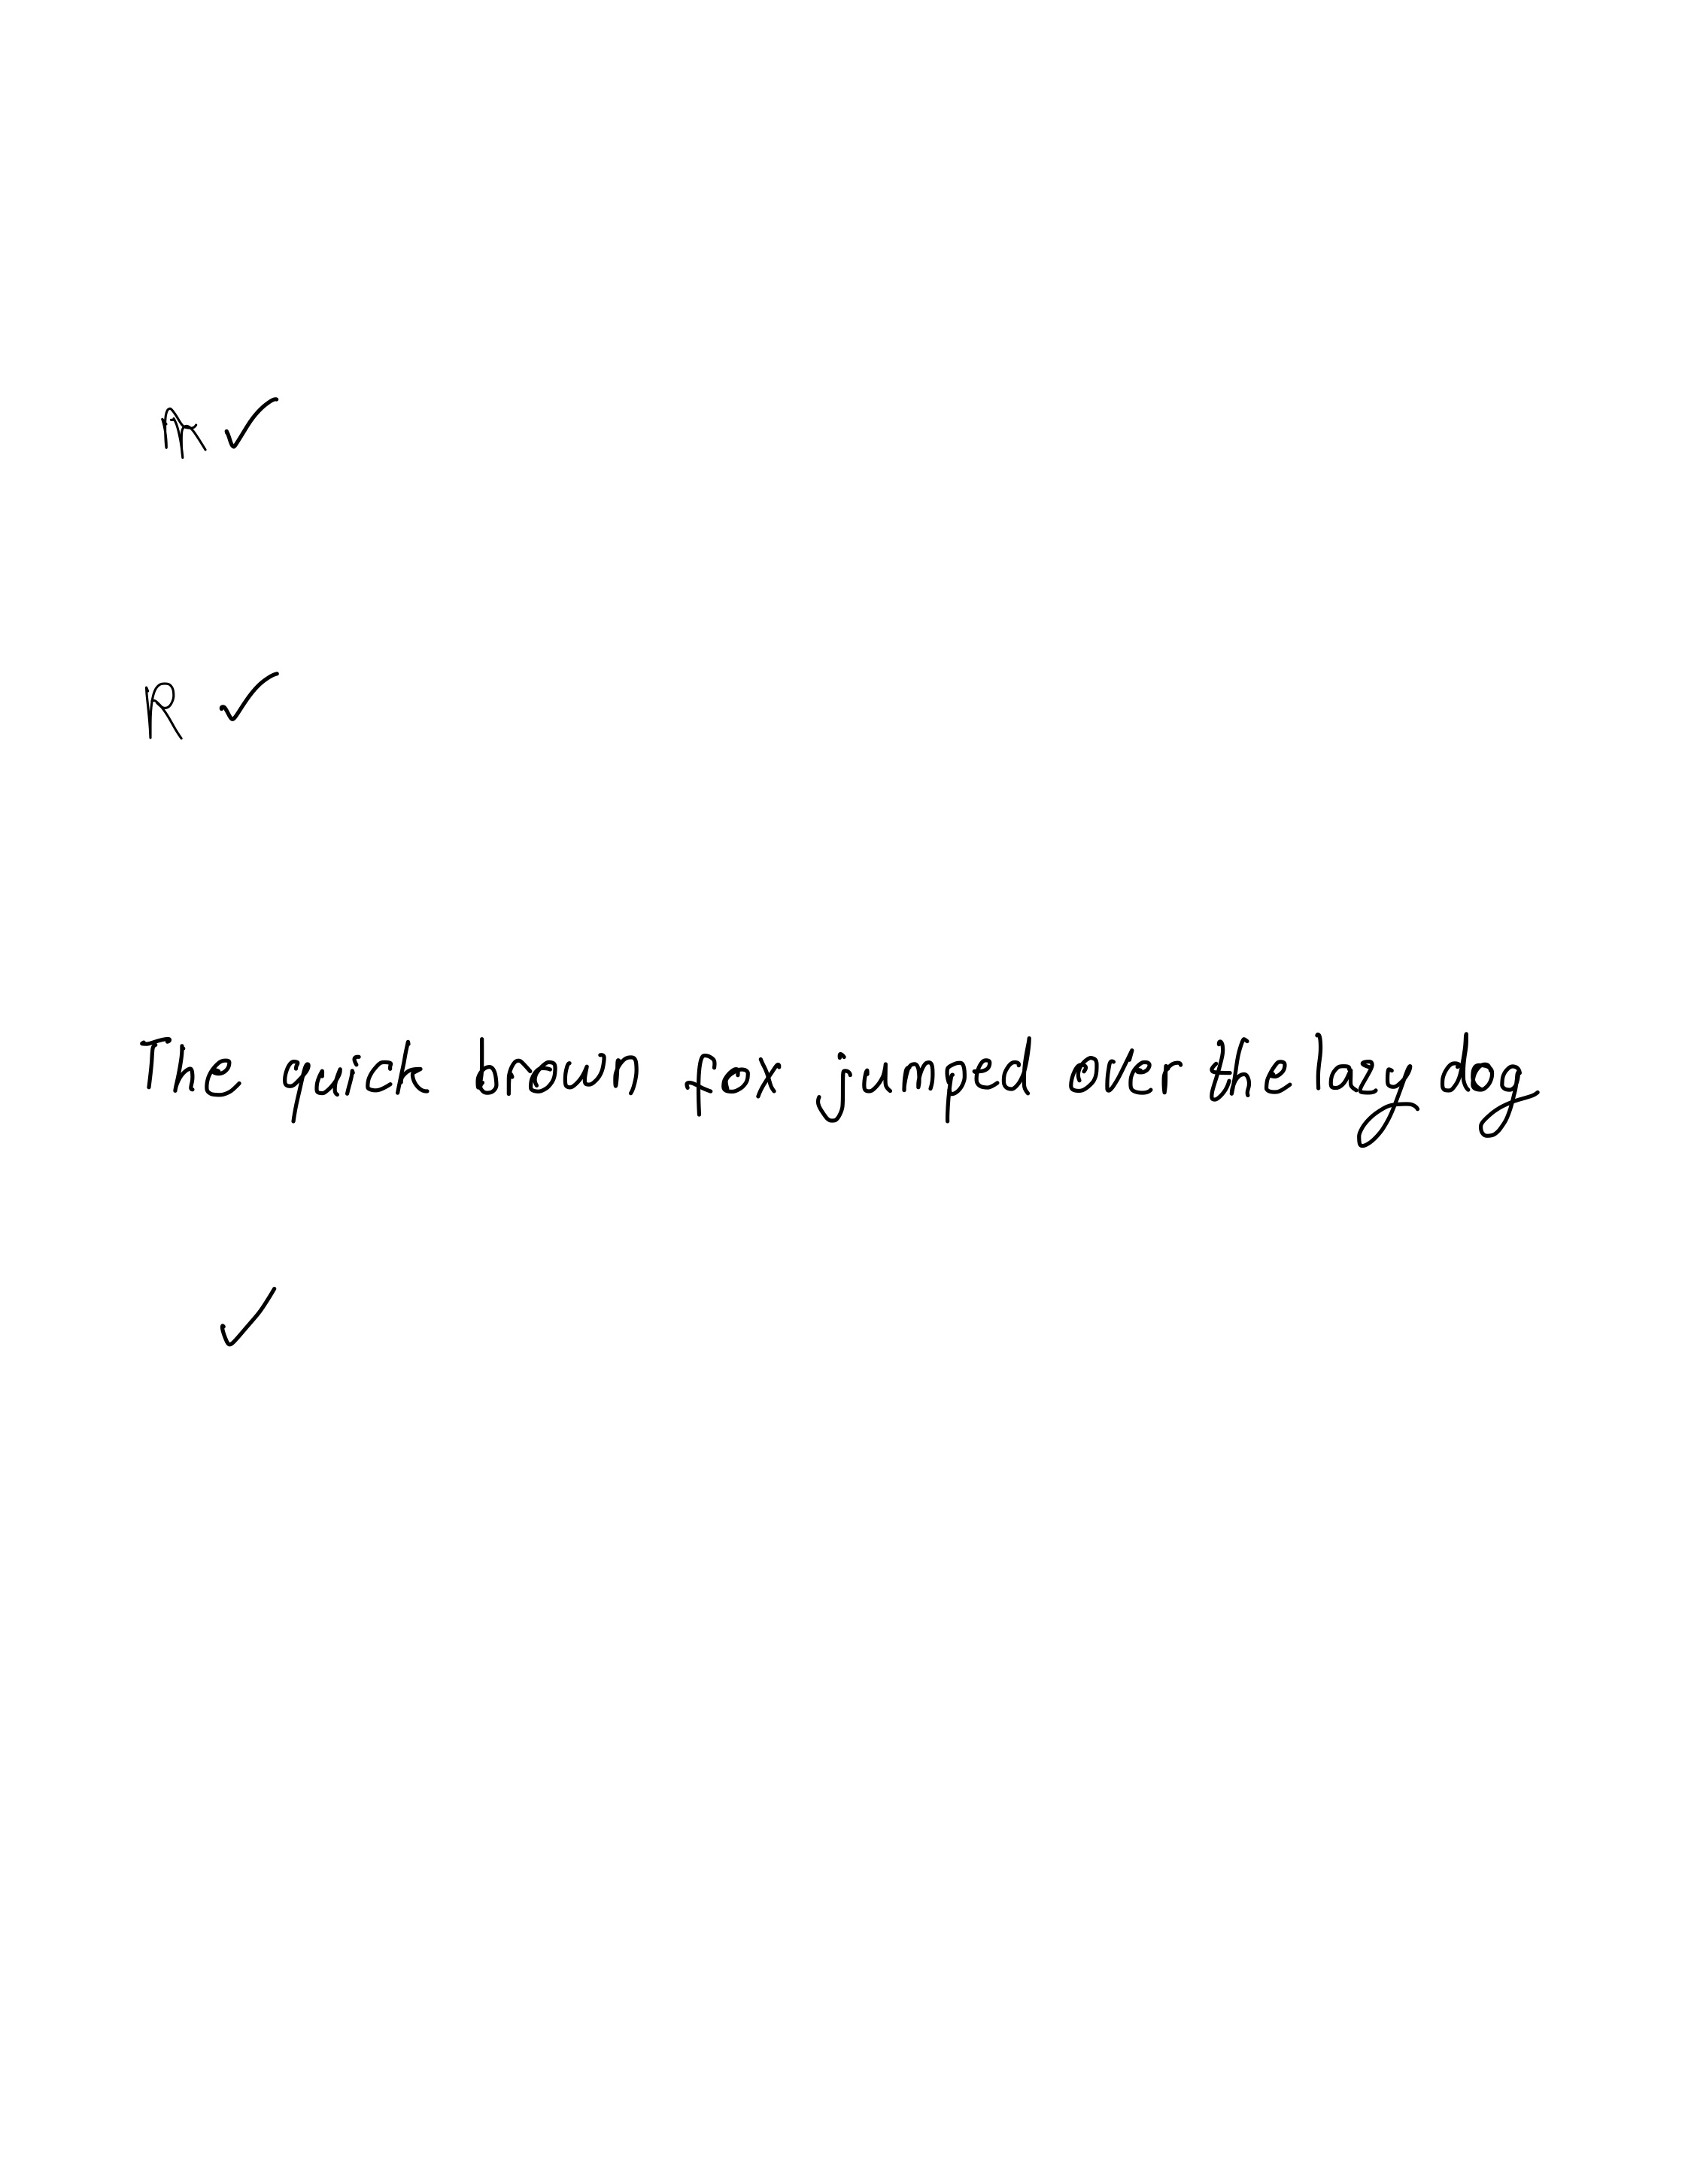 ✓
R ✓
The quick brown fox jumped over the lazy dog
✓